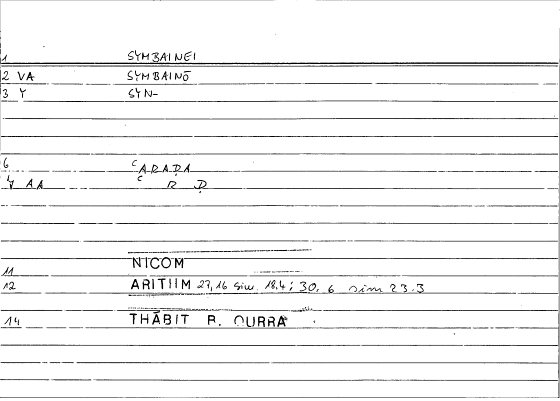 1 SYMBAINEI
2 VA SYMBAINŌ
3 Y SYN-
6 ʿARAḌA
AA ʿ R Ḍ
11 NICOM
12 ARITHM 27,16 sim. 18.4; 30. 6 sim 23.3
14 THĀBIT B. QURRA